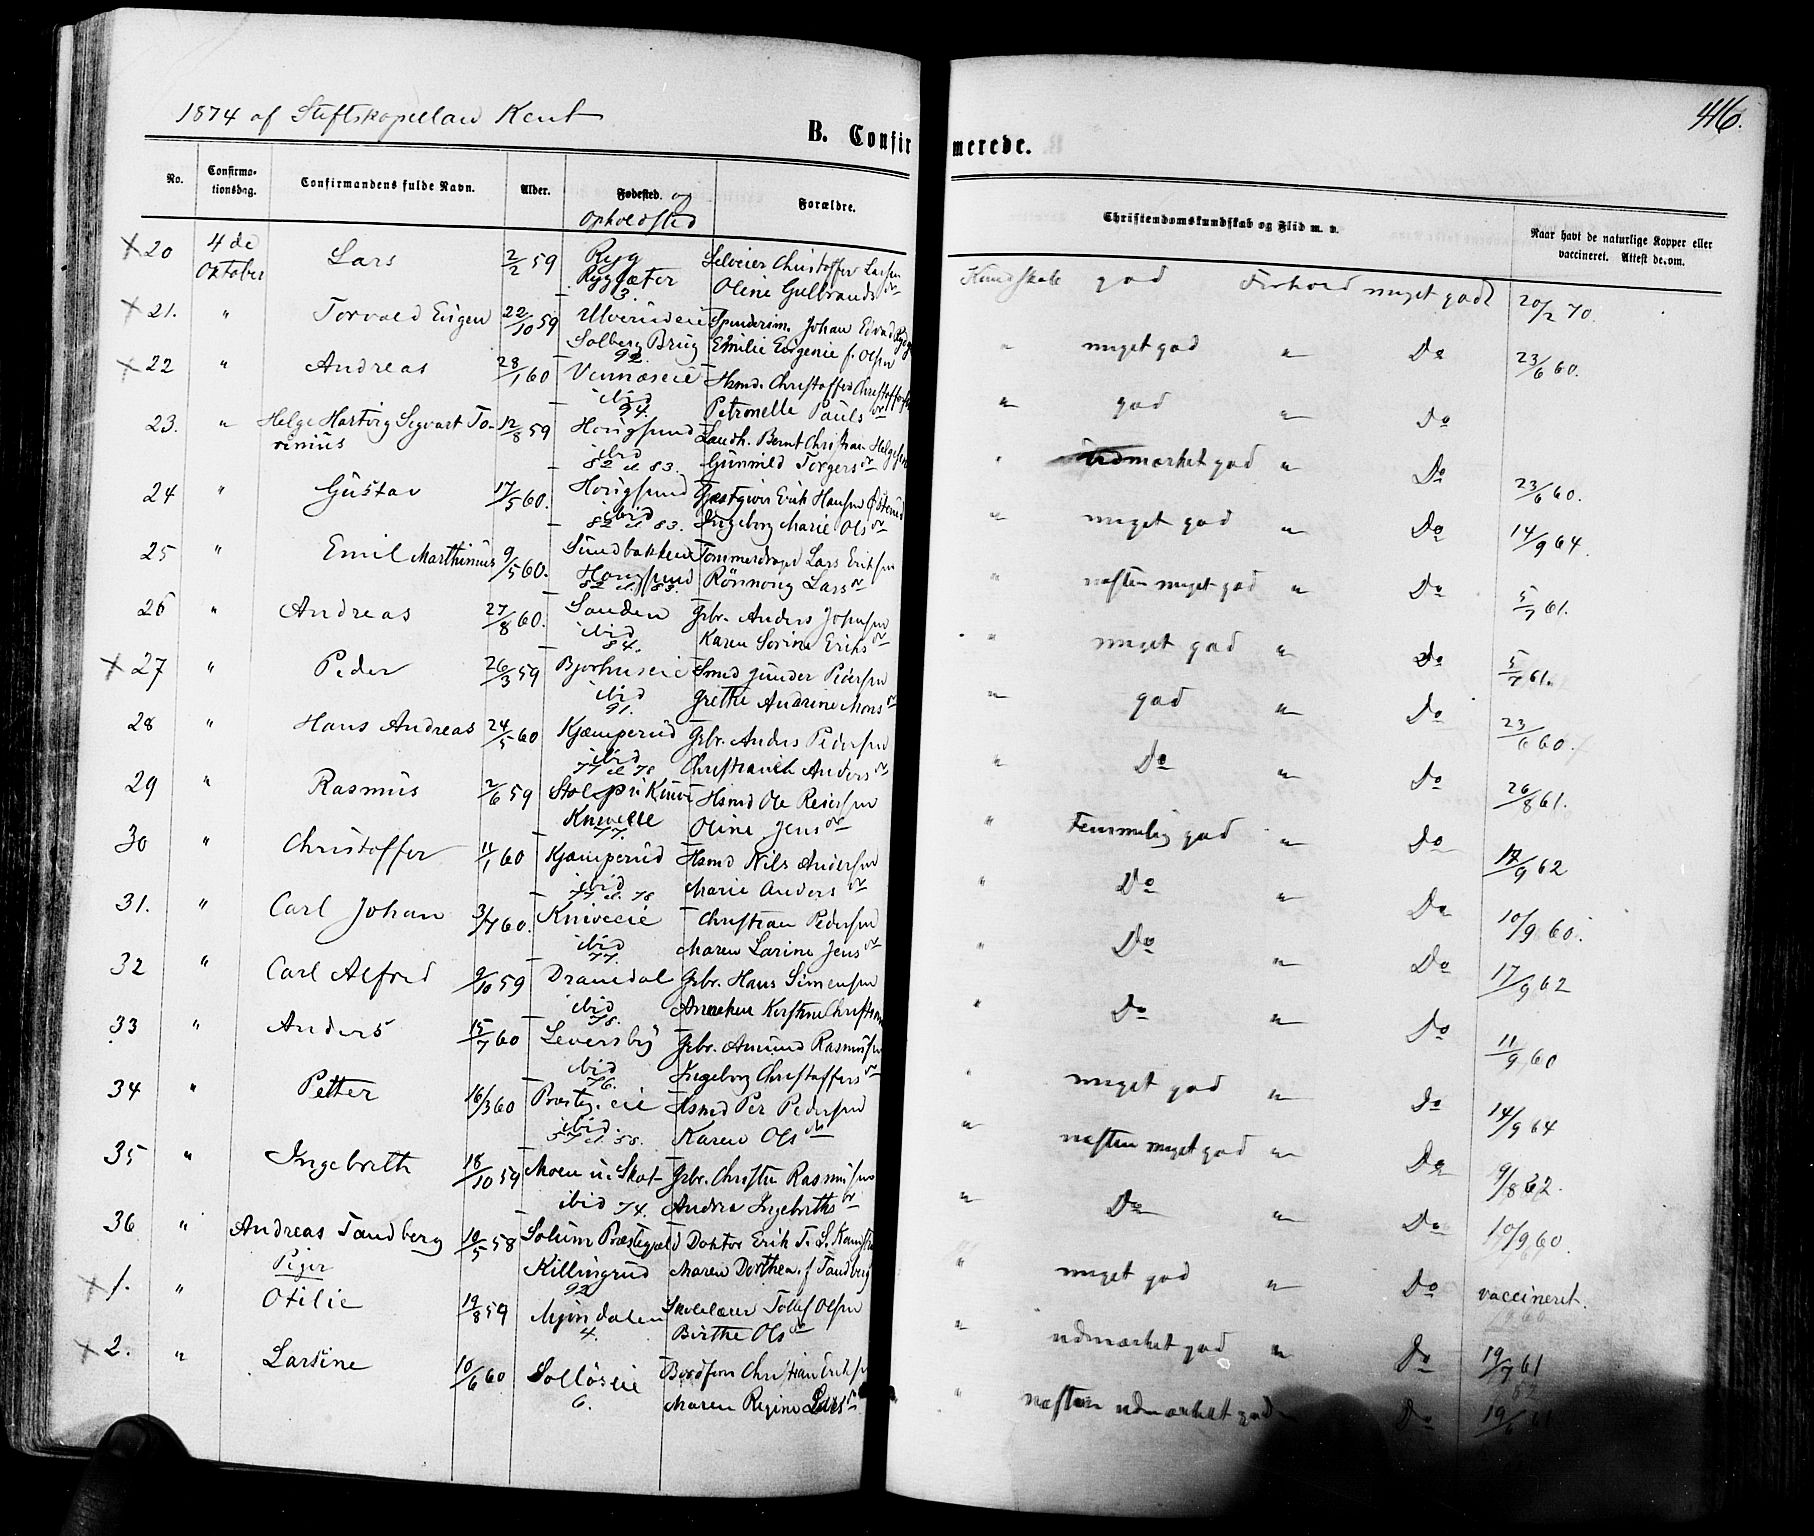 1874 af Stiftskapellan Kent
416.
B. Confirmerede.
No.
Confirmationsdag.
Confirmandens fulde Navn.
Alder.
Fødested. og Opholdsted
Forældre.
Christendomskundskab og Flid m. v.
Naar havt de naturlige Kopper eller vaccineret. Attest derom.
20 4de Oktober Lars 2/2 59 Ryg Rygsæter 3. Selveier Christoffer Larsen Oline Gulbrandsdr Kundskab god Forhold meget godt 20/2 70.
21. " Torvald Eugen 22/10 59 Ulverudeie Solberg Brug 92. Spinderim. Johan Emilie Eugenie f. Olsen " meget god " Do 23/6 60.
22 " Andreas 28/1 60 ibid 94. Hsmd. Christoffer Christoffersen Petronelle Paulsdr " god " Do
23. " Helge Hartvig Segvart To- rinius 12/8 59 Hougsund ibid 82 el. 83. Landh. Bernt Christian Helgesen Gunnild Torgersdr " udmærket god " Do 23/6 60.
24 " Gustav 17/5 60. Hougsund ibid 82 el. 83. Gjæstgiver Erik Hansen Ingeborg Marie Olsdr " meget god " Do 14/9 64.
25 " Emil Marthinius 9/5 60. Sundbakken Hougsund 82 el. 83. Lars Eriksen Rønnoug Larsdr " næsten meget god " Do 5/7 61.
26 " Andreas 27/8 60. Sanden ibid 84. Gbr. Anders Karen Sorine Eriksdr " meget god " Do 5/7 61.
27 " Peder 26/3 59 Bjørhuseie ibid 91. Smed Gunder Pedersen Grethe Andrine Monsdr " god " Do 23/6 60.
28 " Hans Andreas 24/5 60 Kjæmperud ibid 77 el. 78 Gbr. Anders Pedersen Andersdr " Do " Do 26/8 61.
29 " Rasmus 2/6 59 Knivelle 77. Hsmd Ole Reiersen Oline Jensdr " Temmelig god " Do 17/9 62
30 " Christoffer 11/1 60 Kjæmperud ibid 77 el. 78 Hsmd Nils Andersen Marie Andersdr " Do " Do 10/9 60.
31. " Carl Johan 3/7 60. Kniveeie ibid 77. Christian Pedersen Maren Larine Jensdr " Do " Do 17/9 62
32 " Carl Alfred 9/10 59 Dramdal ibid 78. Gbr. Hans Simensen Anneken Kirstine " Do " Do 11/9 60
33 " Anders 15/7 60 Leversby ibid 76. Gbr. Amund Rasmusen Ingeborg Christoffersdr " meget god " Do 14/9 64
34 " Petter 16/3 60 Præsteg. eie ibid 57 el. 58. Hsmd Per Pedersen Karen Olsdr " næsten meget god " Do 9/8 62.
35 " Ingebreth 18/10 59 Moen u. Skot- ibid 74. Gbr. Christen Rasmusen Andrea Ingebrethsdr " Do " Do 10/9 60.
36 " Andreas Tandberg 10/5 58 Solum Præstegjeld Killingrud 92 Doktor Erik T. S. Maren Dorthea f. Tandberg " meget god " Do vaccineret.
Piger
1. " Otilie 19/8 59 Mjøndalen 4. Skolelærer Tollef Olsen Birthe Olsdr " udmærket god " Do 19/7 61
2. " Larsine 10/6 60 Solløseie 6. Christian Eriksen Maren Regine Larsdr " næsten udmærket god " Do 19/6 61